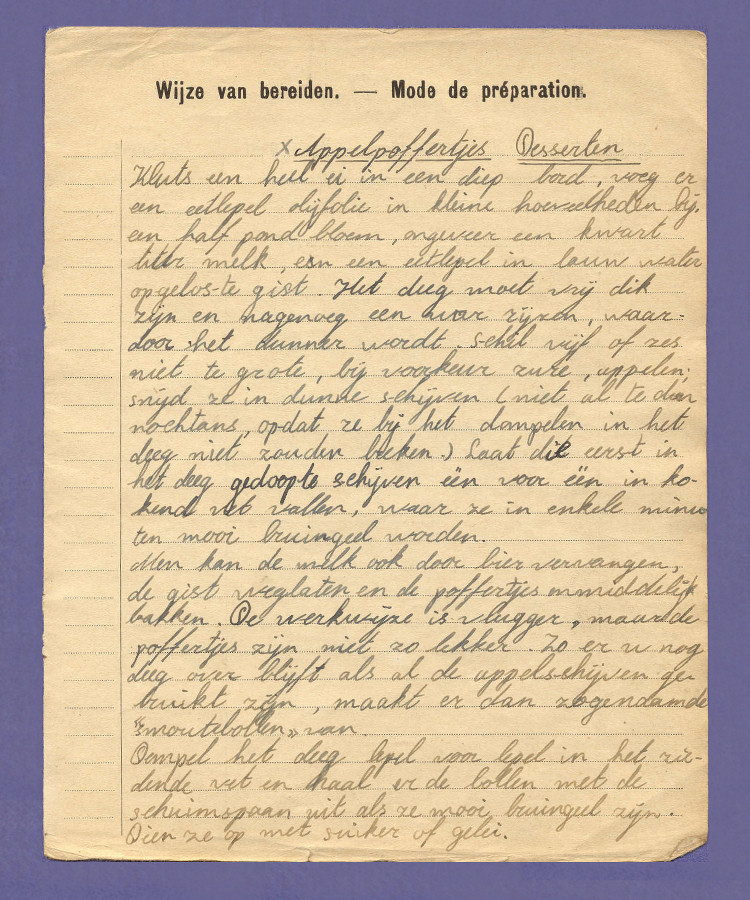 Wijze van bereiden. — Mode de préparation.
x Appelpoffertjes Desserten
Kluts een heel ei in een diep bord, voeg er
een eetlepel olijfolie in kleine hoeveelheden bij.
een half pond bloem, ongeveer een kwart
liter melk, een eetlepel in lauw water
opgelos-te gist. Het deeg moet vrij dik
zijn en nagenoeg een uur rijzen, waar-
door het dunner wordt. Schil vijf of zes
niet te grote, bij voorkeur zure, appelen;
snijd ze in dunne schijven (niet al te dun
nochtans, opdat ze bij het dompelen in het
deeg niet zouden breken.) Laat die eerst in
het deeg gedoopte schijven één voor één in ko-
kend vet vallen, waar ze in enkele minu
ten mooi bruingeel worden.
Men kan de melk ook door bier vervangen,
de gist weglaten en de poffertjes onmiddelijk
bakken. De werkwijze is vlugger, maar de
poffertjes zijn niet zo lekker. Zo er u nog
deeg over blijft als al de appelschijven ge-
bruikt zijn, maakt er dan zogendamde
"smoutebollen" van.
Dompel het deeg lepel voor lepel in het zie-
dende vet en haal er de bollen met de
schuimspaan uit als ze mooi bruingeel zijn.
Dien ze op met suiker of gelei.